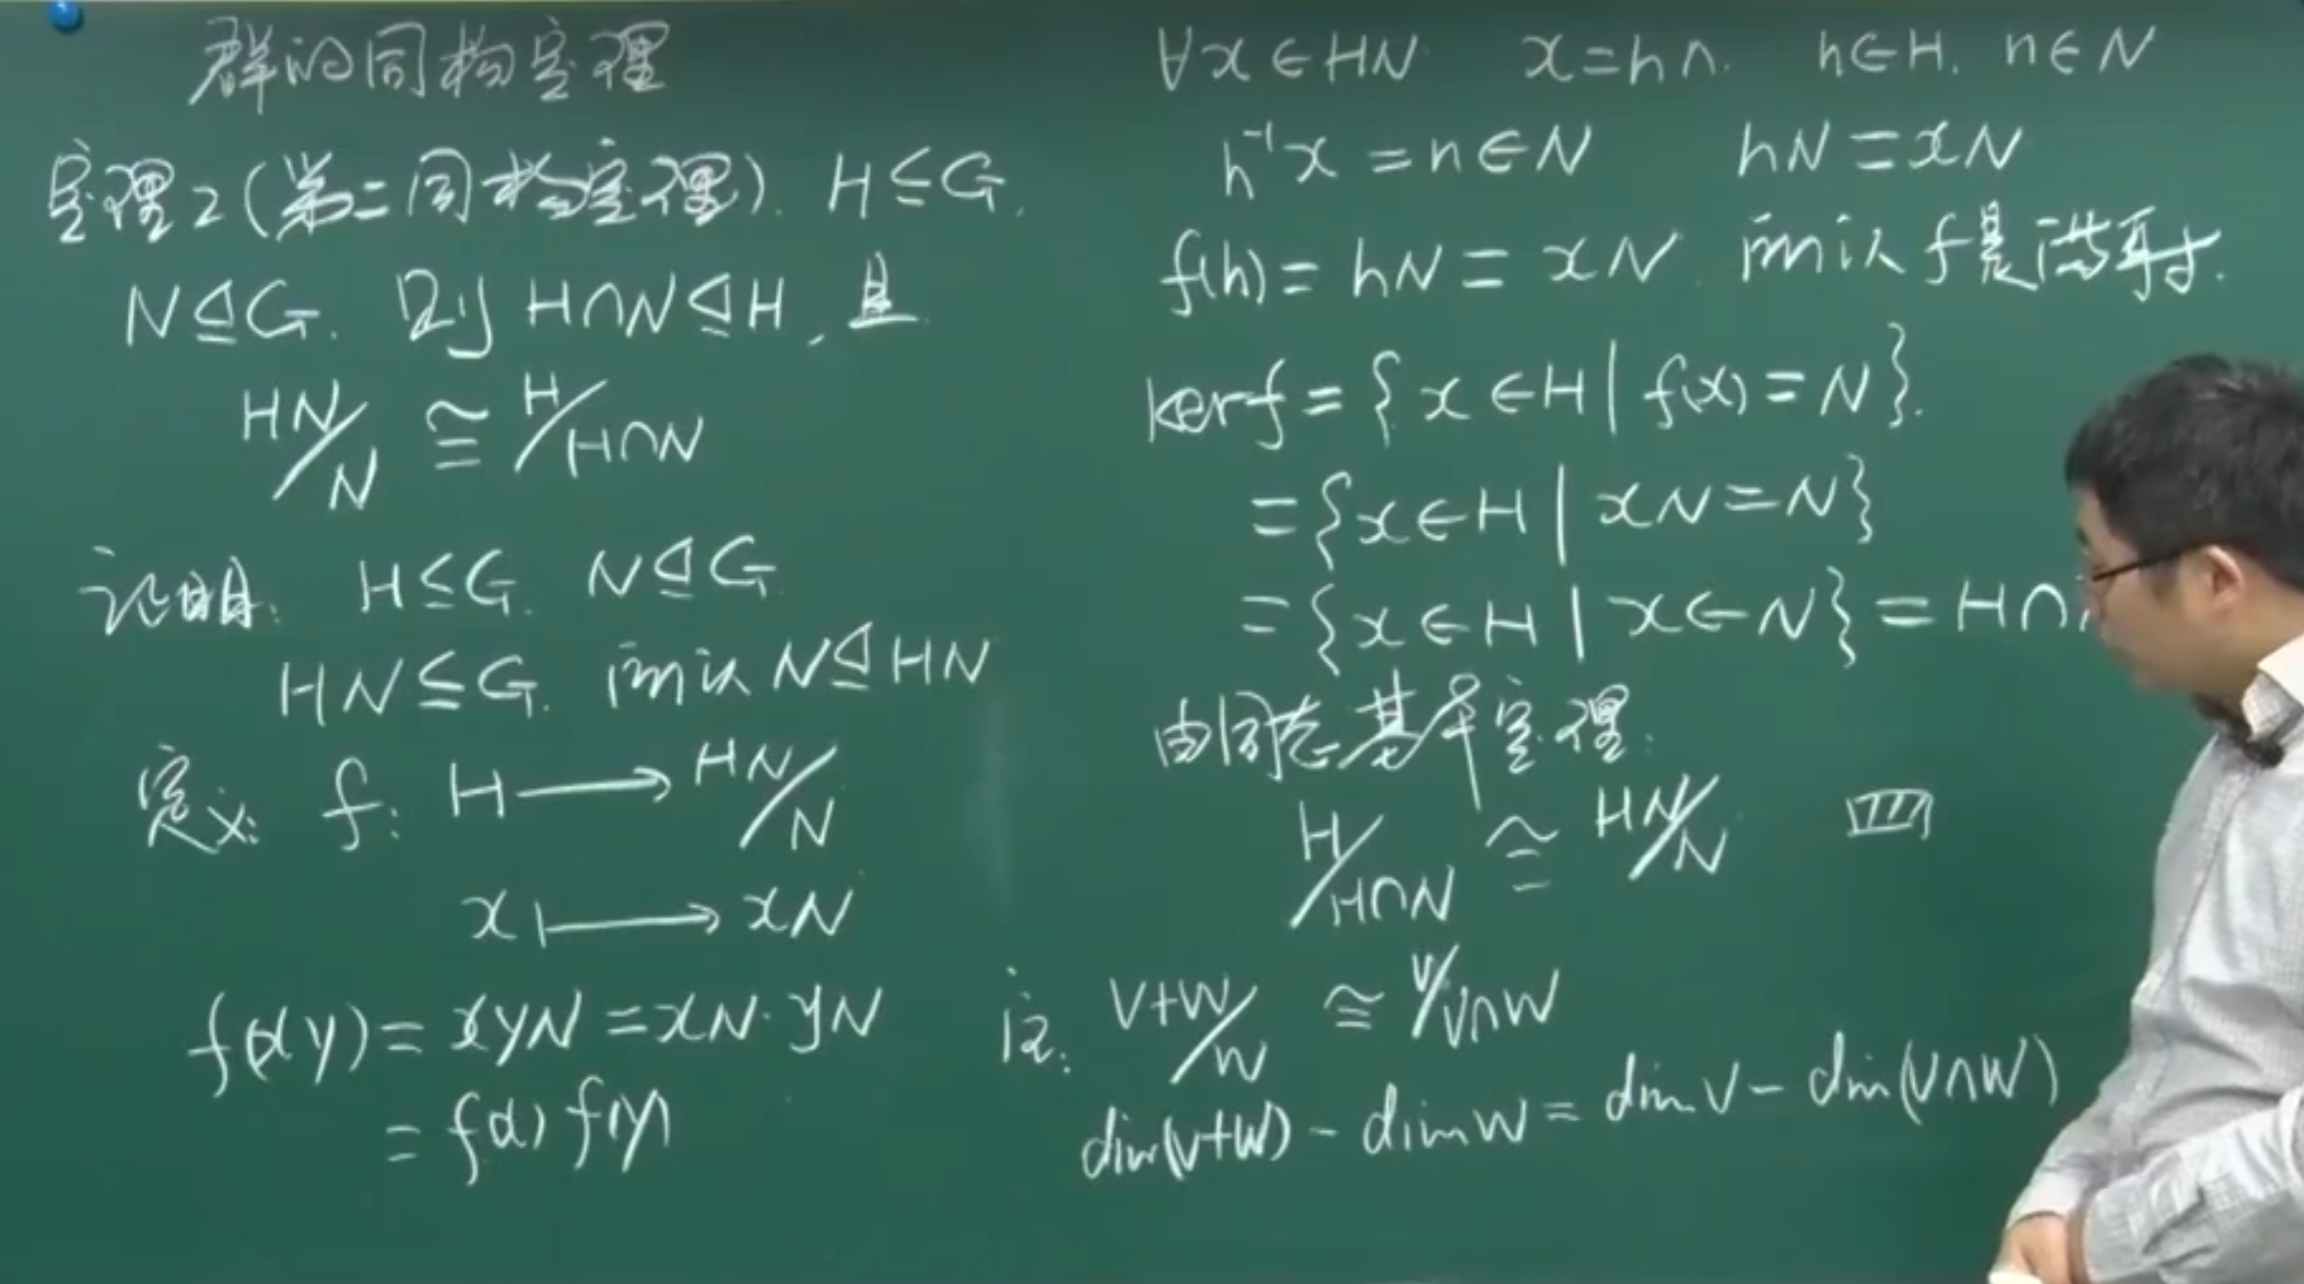 群的同构定理
定理2(第二同构定理). H≤G,
N⊴G. 则 H∩N⊴H, 且
HN/N ≅ H/H∩N
证明: H≤G. N⊴G
HN≤G. 所以 N⊴HN
定义: f: H ⟶ HN/N
x ⟼ xN
f(xy) = xyN = xN·yN
= f(x) f(y)
∀x∈HN x=hn. h∈H. n∈N
h⁻¹x = n∈N hN = xN
f(h) = hN = xN. 所以 f是满射.
kerf = {x∈H | f(x) = N}.
= {x∈H | xN = N}
= {x∈H | x∈N} = H∩
由同态基本定理.
H/H∩N ≅ HN/N ▨
注: V+W/W ≅ V/V∩W
dim(V+W) - dimW = dimV - dim(V∩W)